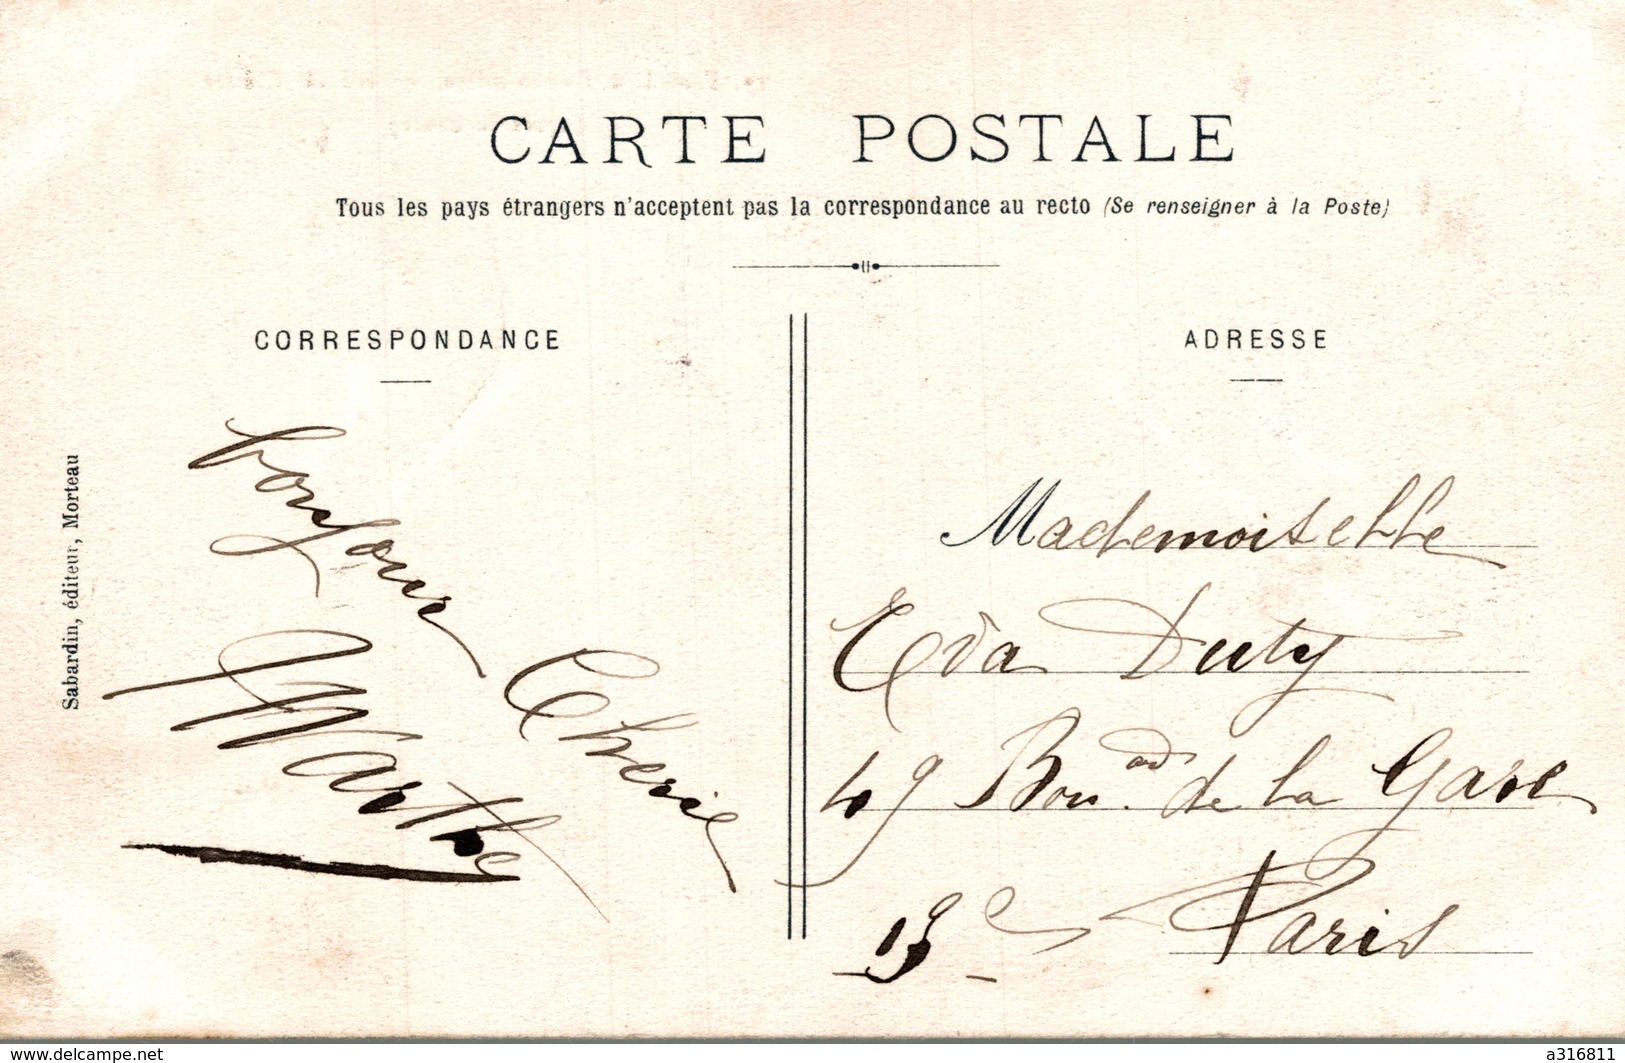 CARTE POSTALE
Tous les pays étrangers n'acceptent pas la correspondance au recto (Se renseigner à la Poste)
CORRESPONDANCE
ADRESSE
Sabardin, éditeur, Morteau
bonjour Cherie
Marthe
Mademoiselle
Eva Duty
49 Bou.ard de la Gare
13e Paris
www.delcampe.net
a316811